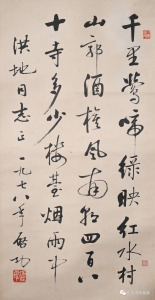 千里鶯啼綠映紅水村
山郭酒旗風南朝四百八
十寺多少樓臺烟雨中
洪地同志正 一九七八年 啟功